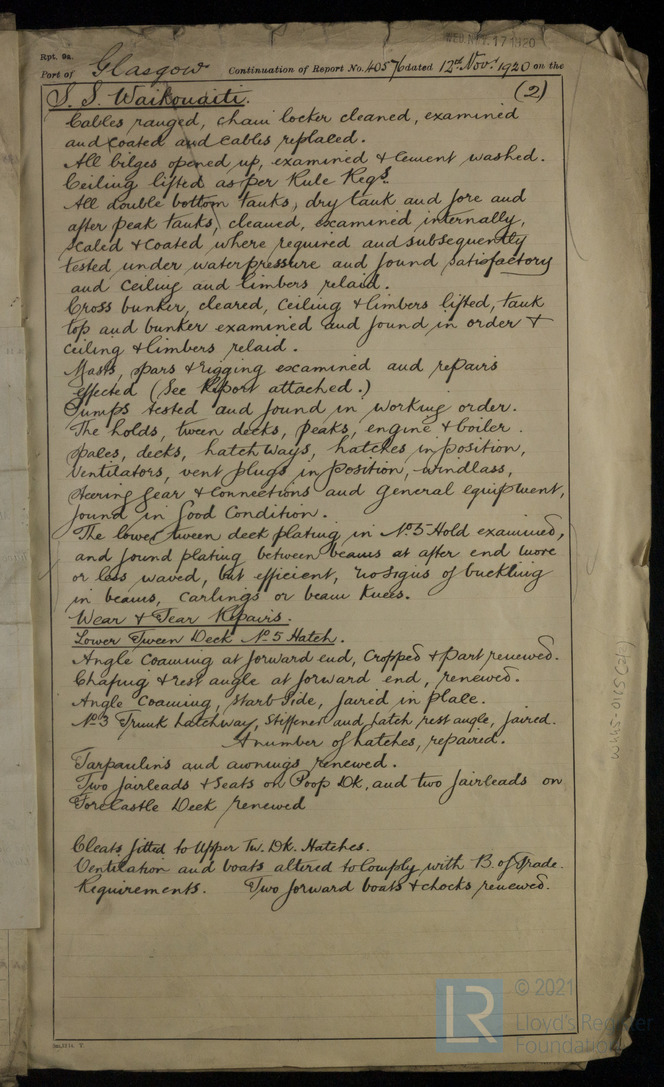 WED. NOV. 17 1920
Rpt. 9a.
Port of Glasgow Continuation of Report No. 40576 dated 12th Nov. 1920 on the
S. S. Waikouaiti. (2)
Cables ranged, chain locker cleaned, examined
and coated and cables replaced.
All bilges opened up, examined & cement washed.
Ceiling lifted as per Rule Reqs.
All double bottom tanks, dry tank and fore and
after peak tanks, cleaned, examined internally,
scaled & coated where required and subsequently
tested under waterpressure and found satisfactory
and ceiling and limbers relaid.
Cross bunker, cleared, ceiling & limbers lifted, tank
top and bunker examined and found in order &
ceiling & limbers relaid.
Masts, spars & rigging examined and repairs
effected (See Report attached.)
Pumps tested and found in working order.
The holds, tween decks, peaks, engine & boiler
spaces, decks, hatchways, hatches in position,
ventilators, vent plugs in position, windlass,
steering gear & connections and general equipment,
found in good condition.
The lower tween deck plating in No. 5 Hold examined,
and found plating between beams at after end more
or less waved, but efficient, no signs of buckling
in beams, carlings or beam knees.
Wear & Tear Repairs.
Lower Tween Deck No. 5 Hatch.
Angle coaming at forward end, cropped & part renewed.
Chafing & rest angle at forward end, renewed.
Angle coaming, starb side, faired in place.
No. 3 Trunk hatchway, stiffener and hatch rest angle, faired.
A number of hatches, repaired.
Tarpaulins and awnings renewed.
Two fairleads & seats on Poop Dk, and two fairleads on
Forecastle Deck renewed
Cleats fitted to Upper Tw. Dk. Hatches.
Ventilation and boats altered to comply with B. of Trade
Requirements. Two forward boats & chocks renewed.
© 2021
LR
Lloyd's Register
Foundation